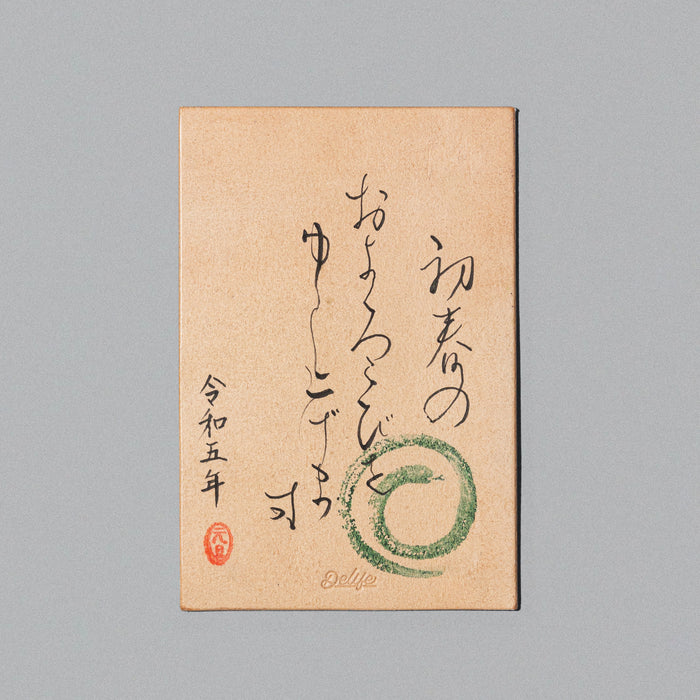 初春の
およろこびを
申し上げま
す
令和五年
元旦
Delife